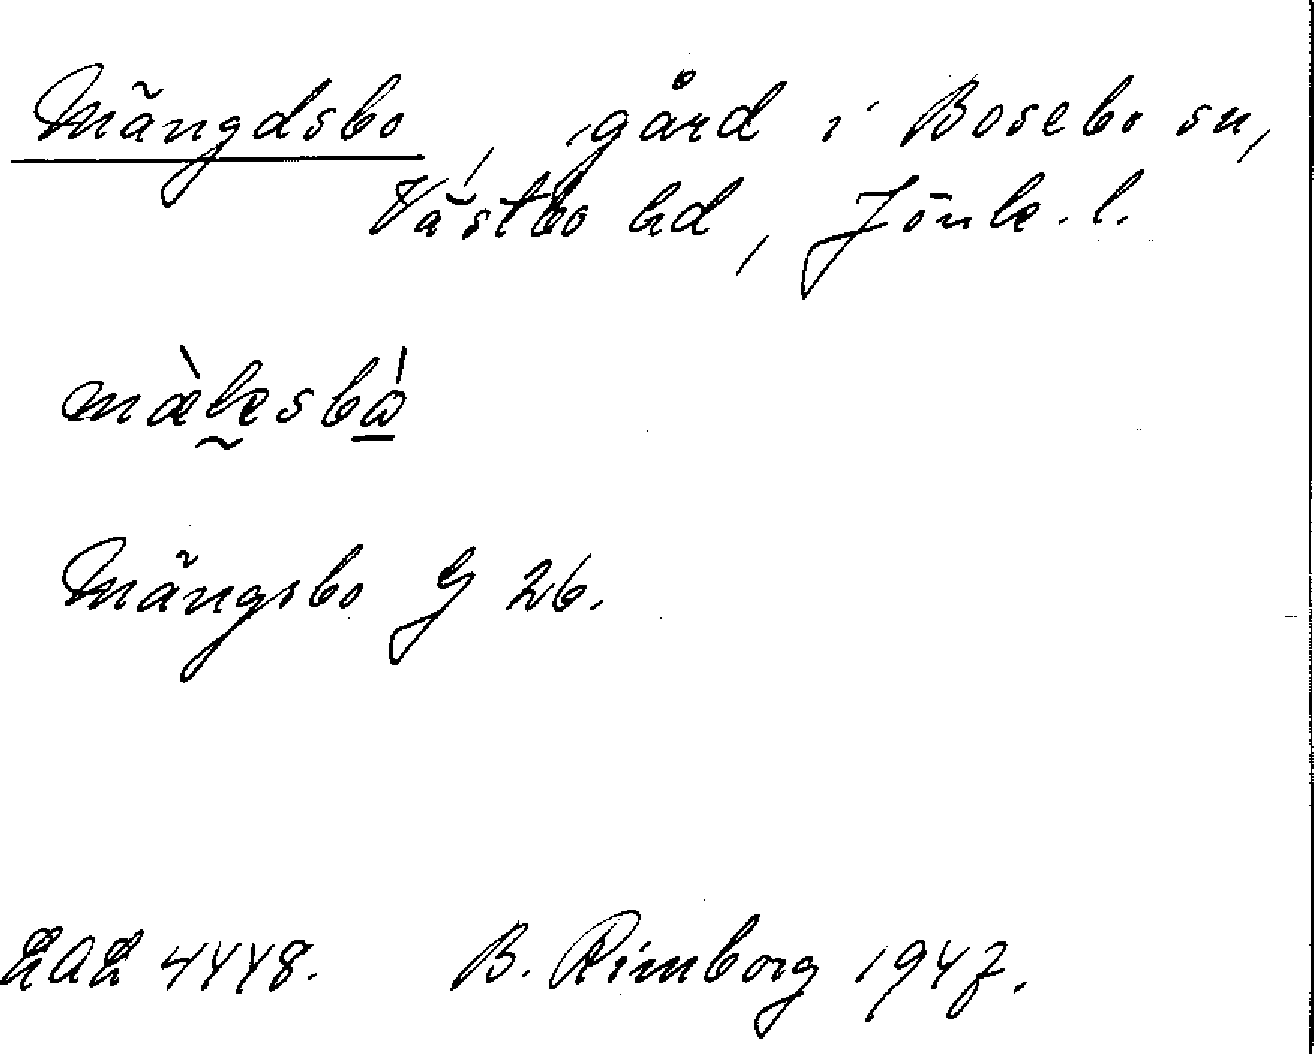 Mängdsbo, gård i Bosebo sn,
Västbo hd, Jönk. l.
mæ̀k̰sbå̀
Mängsbo G 26.
LAL 4448. B. Rimborg 1947.